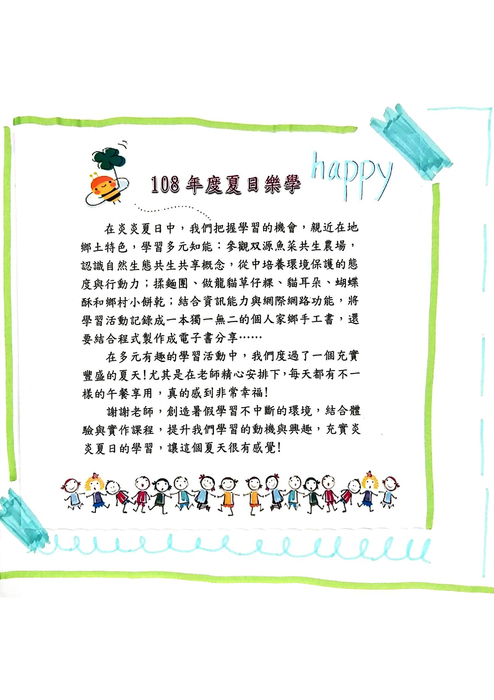 108 年度夏日樂學
happy
在炎炎夏日中，我們把握學習的機會，親近在地
鄉土特色，學習多元知能：參觀双源魚菜共生農場，
認識自然生態共生共享概念，從中培養環境保護的態
度與行動力；揉麵團、做龍貓草仔粿、貓耳朵、蝴蝶
酥和鄉村小餅乾；結合資訊能力與網際網路功能，將
學習活動記錄成一本獨一無二的個人家鄉手工書，還
要結合程式製作成電子書分享……
在多元有趣的學習活動中，我們度過了一個充實
豐盛的夏天!尤其是在老師精心安排下，每天都有不一
樣的午餐享用，真的感到非常幸福!
謝謝老師，創造暑假學習不中斷的環境，結合體
驗與實作課程，提升我們學習的動機與興趣，充實炎
炎夏日的學習，讓這個夏天很有感覺!